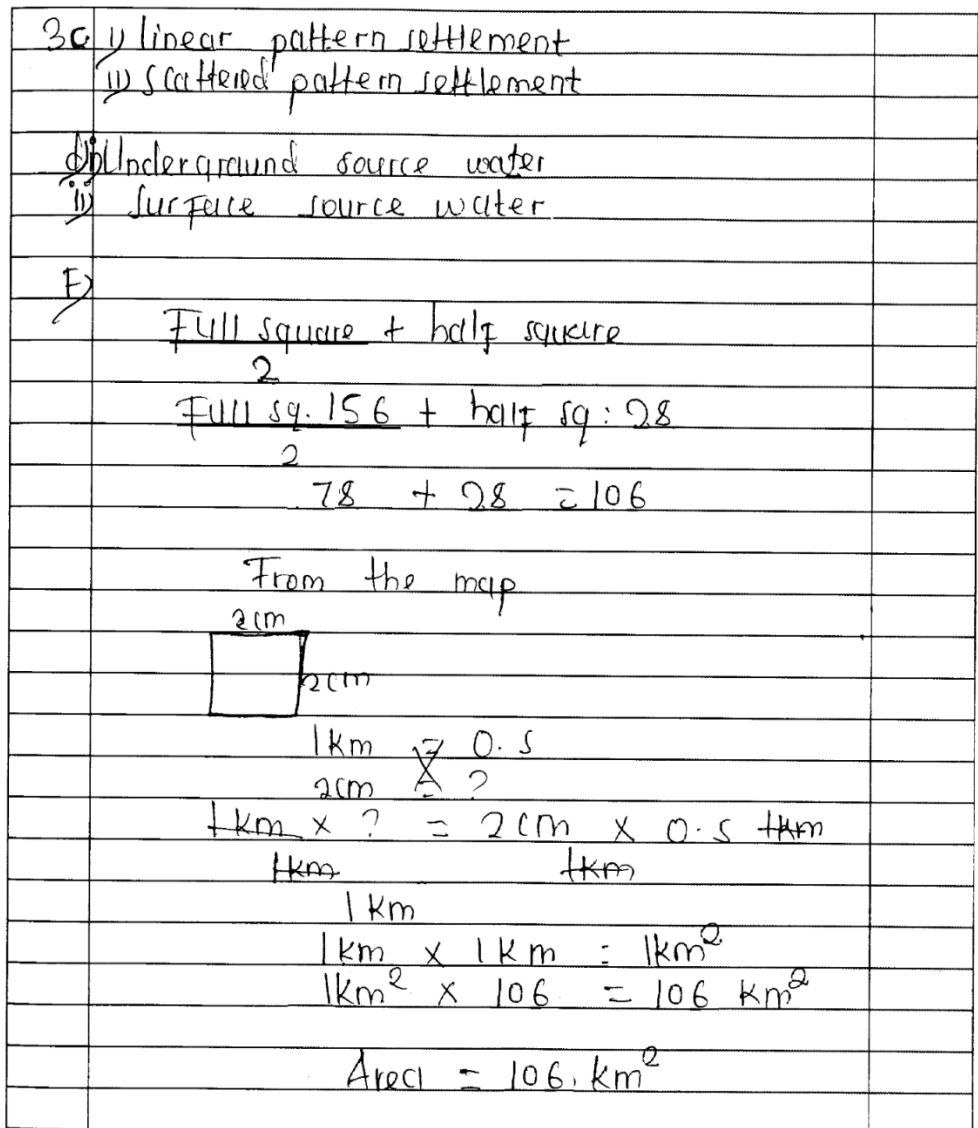 3c i) linear pattern settlement
ii) scattered pattern settlement
d) i) Underground source water
ii) surface source water
F)
Full square + half square
2
Full sq. 156 + half sq: 28
2
78 + 28 = 106
From the map
2cm
2cm
1km = 0.5
2cm = ?
1km x ? = 2cm x 0.5 1km
1km 1km
1 km
1km x 1km = 1km²
1km² x 106 = 106 km²
Area = 106. km²